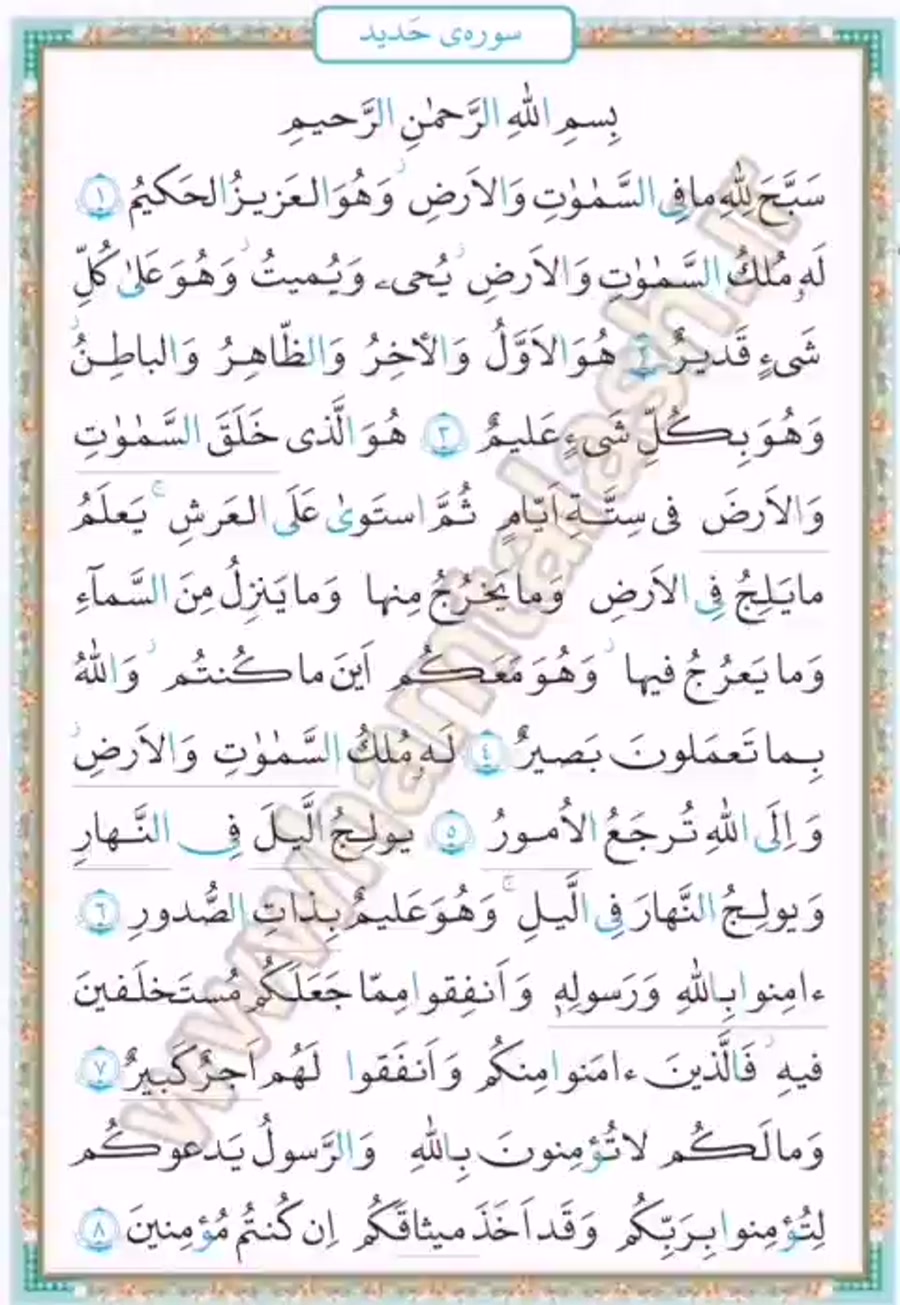 سوره‌ی حَدید
بِسمِ اللّٰهِ الرَّحمٰنِ الرَّحیمِ
سَبَّحَ لِلّٰهِ ما فِی السَّمٰوٰتِ وَ الاَرضِ ۖ وَ هُوَ العَزیزُ الحَکیمُ ﴿١﴾
لَهٗ مُلکُ السَّمٰوٰتِ وَ الاَرضِ ۖ یُحیۦ وَ یُمیتُ ۖ وَ هُوَ عَلیٰ کُلِّ
شَیءٍ قَدیرٌ ﴿٢﴾ هُوَ الاَوَّلُ وَ الأٰخِرُ وَ الظّاهِرُ وَ الباطِنُ ۖ
وَ هُوَ بِکُلِّ شَیءٍ عَلیمٌ ﴿٣﴾ هُوَ الَّذی خَلَقَ السَّمٰوٰتِ
وَ الاَرضَ فی سِتَّةِ اَیّامٍ ثُمَّ استَویٰ عَلَی العَرشِ ۚ یَعلَمُ
ما یَلِجُ فِی الاَرضِ وَ ما یَخرُجُ مِنها وَ ما یَنزِلُ مِنَ السَّمآءِ
وَ ما یَعرُجُ فیها ۖ وَ هُوَ مَعَکُم اَینَ ما کُنتُم ۖ وَ اللّٰهُ
بِما تَعمَلونَ بَصیرٌ ﴿٤﴾ لَهٗ مُلکُ السَّمٰوٰتِ وَ الاَرضِ ۖ
وَ اِلَی اللّٰهِ تُرجَعُ الاُمورُ ﴿٥﴾ یولِجُ الَّیلَ فِی النَّهارِ
وَ یولِجُ النَّهارَ فِی الَّیلِ ۚ وَ هُوَ عَلیمٌ بِذاتِ الصُّدورِ ﴿٦﴾
ءامِنوا بِاللّٰهِ وَ رَسولِهٖ وَ اَنفِقوا مِمّا جَعَلَکُم مُستَخلَفینَ
فیهِ ۖ فَالَّذینَ ءامَنوا مِنکُم وَ اَنفَقوا لَهُم اَجرٌ کَبیرٌ ﴿٧﴾
وَ ما لَکُم لا تُؤمِنونَ بِاللّٰهِ وَ الرَّسولُ یَدعوکُم
لِتُؤمِنوا بِرَبِّکُم وَ قَد اَخَذَ میثاقَکُم اِن کُنتُم مُؤمِنینَ ﴿٨﴾
www.hamtalash.ir